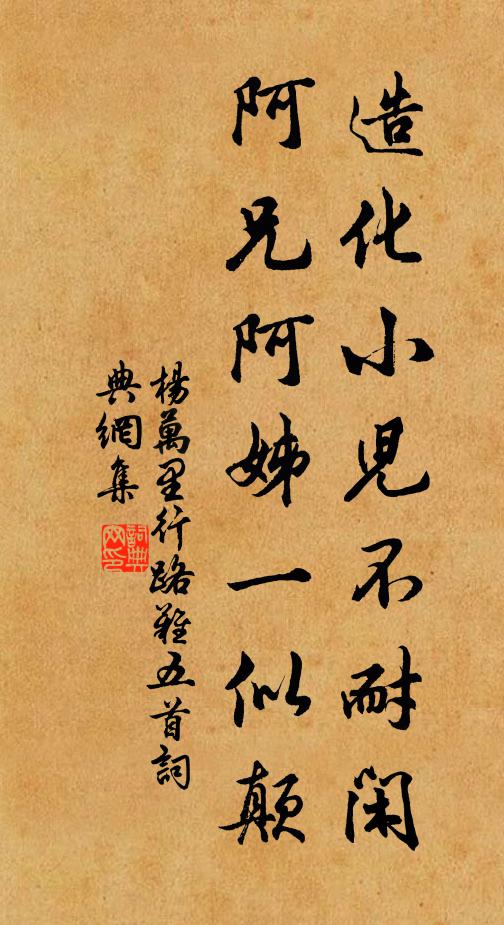 造化小児不耐闲
阿兄阿姊一似颠
楊萬里行路難五首詞
典網集
詞典网印